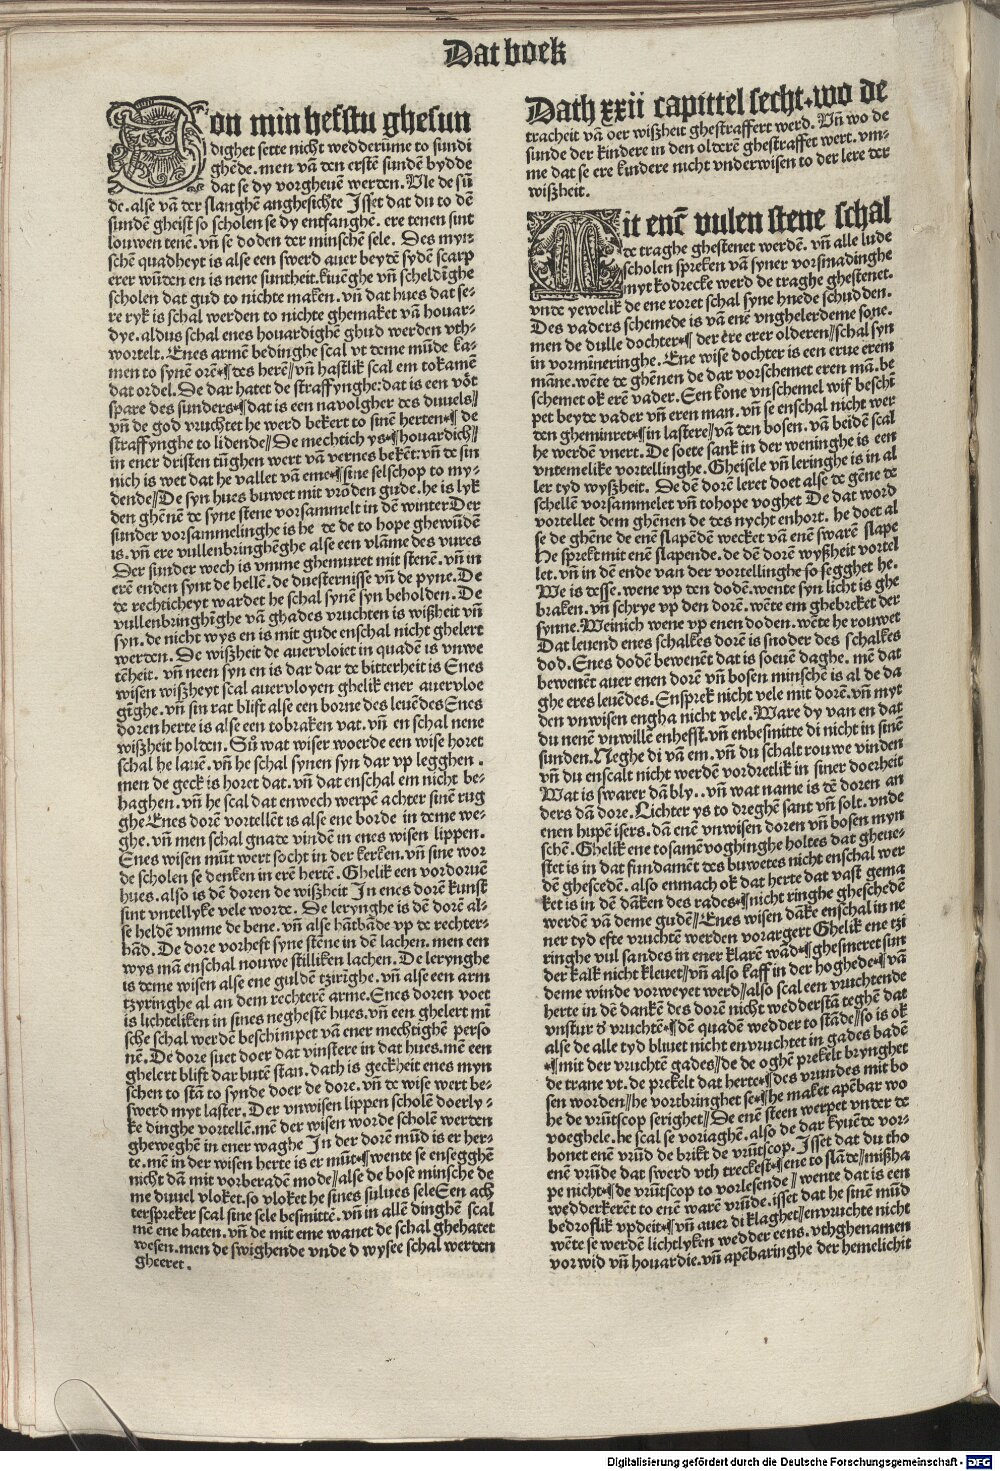 Dat boek
Son min hefstu ghesun
dighet sette nicht wedderume to sundi
ghēde. men vā den erstē sundē bydde
dat se dy vorgheuē werden. Vle de sū
de. alse vā der slanghē anghesichte Isset dat du to dē
sundēn gheist so scholen se dy entfanghē. ere tenen sint
louwen tenē. vn̄ se doden der minschē sele. Des myn
schē quadheyt is alse een swerd auer beydē sydē scarp
erer wūden en is nene suntheit. kiuēghe vn̄ scheldīghe
scholen dat gud to nichte maken. vn̄ dat hues dat se-
re ryk is schal werden to nichte ghemaket vā houar-
dye. aldus schal enes houardighē ghud werden vth-
wortelt. Enes armē bedinghe scal vt deme mūde ka-
men to synē orē¶des herē/ vn̄ hastlik scal em tokamē
dat ordel. De dar hatet de straffynghe: dat is een vōt
spare des sunders¶dat is een navolgher des diuuels//
vn̄ de god vruchtet he werd bekert to sinē herten¶ de
straffynghe to lidende// De mechtich ys¶houardich//
in ener dristen tūghen wert vā vernes bekēt. vn̄ de sin
nich is wet dat he vallet vā eme¶sine selschop to my-
dende// De syn hues buwet mit vrōden gude. he is lyk
den ghēnē de syne stene vorsammelt in dē winter Der
sunder vorsammelinghe is he de de to hope ghewūdē
is. vn̄ ere vullenbringhēghe alse een vlāme des vures
Der sunder wech is vmme ghemuret mit stenē. vn̄ in
erē enden synt de hellē. de duesternisse vn̄ de pyne. De
de rechticheyt wardet he schal synē syn beholden. De
vullenbringhīghe vā ghades vruchten is wißheit vn̄
syn. de nicht wys en is mit gude enschal nicht ghelert
werden. De wißheit de auervloiet in quadē is vnwe
tēheit. vn̄ neen syn en is dar dar de bitterheit is Enes
wisen wißheyt scal auervloyen ghelik ener auervloe
gīghe. vn̄ sin rat blift alse een borne des leuēdes Enes
doren herte is alse een tobraken vat. vn̄ en schal nene
wißheit holden. Sū wat wiser woerde een wise horet
schal he lauē. vn̄ he schal synen syn dar vp legghen.
men de geck is horet dat. vn̄ dat enschal em nicht be-
haghen. vn̄ he scal dat enwech werpē achter sinē rug
ghe Enes dorē vortellēt is alse ene borde in deme we-
ghe. vn̄ men schal gnade vindē in enes wisen lippen.
Enes wisen mūt wert socht in der kerken. vn̄ sine wor
de scholen se denken in erē hertē. Ghelik een vordoruē
hues. also is dē doren de wißheit In enes dorē kunst
sint vntellyke vele worde. De lerynghe is dē dorē al-
se heldē vmme de bene. vn̄ alse hātbāde vp de rechter-
hād. De dore vorheft syne stēne in dē lachen. men een
wys mā enschal nouwe stilliken lachen. De lerynghe
is deme wisen alse ene guldē tzirīghe. vn̄ alse een arm
tzyringhe al an dem rechterē arme. Enes doren voet
is lichteliken in sines neghestē hues. vn̄ een ghelert mī
sche schal werdē beschimpet vā ener mechtighē perso
nē. De dore suet doer dat vinstere in dat hues. mē een
ghelert blift dar butē stan. dath is geckheit enes myn
schen to stā to synde doer de dore. vn̄ de wise wert be-
swerd myt laster. Der vnwisen lippen scholē doerly-
ke dinghe vortellē. mē der wisen worde scholē werden
gheweghē in ener waghe In der dorē mūd is er her-
te. mē in der wisen herte is er mūt¶wente se ensegghē
nicht dā mit vorberadē mode// alse de bose minsche de
me diuuel vloket. so vloket he sines sulues sele Een ach
terspreker scal sine sele besmittē. vn̄ in allē dinghē scal
mē ene haten. vn̄ de mit eme wanet de schal ghehatet
wesen. men de swighende vnde d wysee schal werden
gheeret.
Dath xxii capittel secht. wo de
tracheit vā der wißheit ghestraffert werd. Vn̄ wo de
sunde der kindere in den olderē ghestraffet wert. vm-
me dat se ere kindere nicht vnderwisen to der lere der
wißheit.
Mit enē vulen stene schal
de traghe ghestenet werdē. vn̄ alle lude
scholen spreken vā syner vorsmadinghe
myt kodrecke werd de traghe ghestenet.
vnde yewelik de ene roret schal syne hnede schudden.
Des vaders schemede is vā enē vnghelerdeme sone.
men de dulle dochter¶ der ēre erer olderen// schal syn
in vormineringhe. Ene wise dochter is een erue erem
māne. wēte de ghēnen de dar vorschemet eren mā. be
schemet ok erē vader. Een kone vnschemel wif beschī
pet beyde vader vn̄ eren man. vn̄ se enschal nicht wer
den gheminret¶in lastere// vā den bosen. vā beidē scal
he werdē vnert. De soete sank in der weninghe is een
vntemelike vortellinghe. Gheisele vn̄ leringhe is in al
ler tyd wyßheit. De dē dorē leret doet alse de gēne de
schellē vorsammelet vn̄ tohope voghet De dat word
vortellet dem ghēnen de des nycht enhort. he doet al
se de ghēne de enē slapēdē wecket vā enē swarē slape
He sprekt mit enē slapende. de dē dorē wyßheit vortel
let. vn̄ in dē ende van der vortellinghe so segget he.
We is desse. wene vp den dodē. wente syn licht is ghe
braken. vn̄ schrye vp den dorē. wēte em ghebreket der
synne. Weinich wene vp enen doden. wēte he rouwet
Dat leuend enes schalkes dorē is snoder des schalkes
dod. Enes dodē bewenēt dat is soeuē daghe. mē dat
bewenēt auer enen dorē vn̄ bosen minschē is al de da
ghe eres leuēdes. Ensprek nicht vele mit dorē. vn̄ myt
den vnwisen engha nicht vele. Ware dy van en dat
du nenē vnwillē enhefst. vn̄ enbesmitte di nicht in sinē
sunden. Neghe di vā em. vn̄ du schalt rouwe vinden
vn̄ du enscalt nicht werdē vordretlik in siner doerheit
Wat is swarer dā bly.. vn̄ wat name is dē doren an
ders dā dore. Lichter ys to dreghē sant vn̄ solt. vnde
enen hupē isers. dā enē vnwisen doren vn̄ bosen myn
schē. Ghelik ene tosamēvoghinghe holtes dat gheue-
stet is in dat fundamēt des buwetes nicht enschal wer
dē ghescedē. also enmach ok dat herte dat vast gema
ket is in dē dākē des rades¶nicht ringhe gheschedē
werdē vā deme gudē// Enes wisen dāke enschal in ne
ner tyd efte vruchtē werden vorargert Ghelik ene tzi
ringhe vul sandes in ener klarē wād¶ghesmeret sunt
der kalk nicht kleuet// vn̄ also kaff in der hoghede¶vā
deme winde vorweyet werd// also scal een vruchtende
herte in dē dankē des dorē nicht wedderstā teghē dat
vnstur d vruchtē¶dē quadē wedder to stāde// so is ok
alse de alle tyd bliuet nicht en vruchtet in gades badē
¶mit der vruchtē gades// de de oghē prekelt brynghet
de trane vt. de prekelt dat herte¶des vrundes mit bo
sen worden// he vortbringhet se¶he maket apēbar wo
he de vrūtscop serighet// De enē steen werpet vnder de
voeghele. he scal se voriaghē. also de dar kyuēde vor-
honet enē vrūd de brikt de vrūtscop. Isset dat du tho
enē vrūde dat swerd vth treckest¶ene to slāde// mißha
pe nicht¶de vrūtscop to vorlesende// wente dat is een
wedderkerēt to enē warē vrūde. isset dat he sinē mūd
bedroflik vpdeit¶vn̄ auer di klaghet// envruchte nicht
wēte se werdē lichtlyken wedder eens. vthghenamen
vorwid vn̄ houardie. vn̄ apēbaringhe der hemelichit
Digitalisierung gefördert durch die Deutsche Forschungsgemeinschaft - DFG